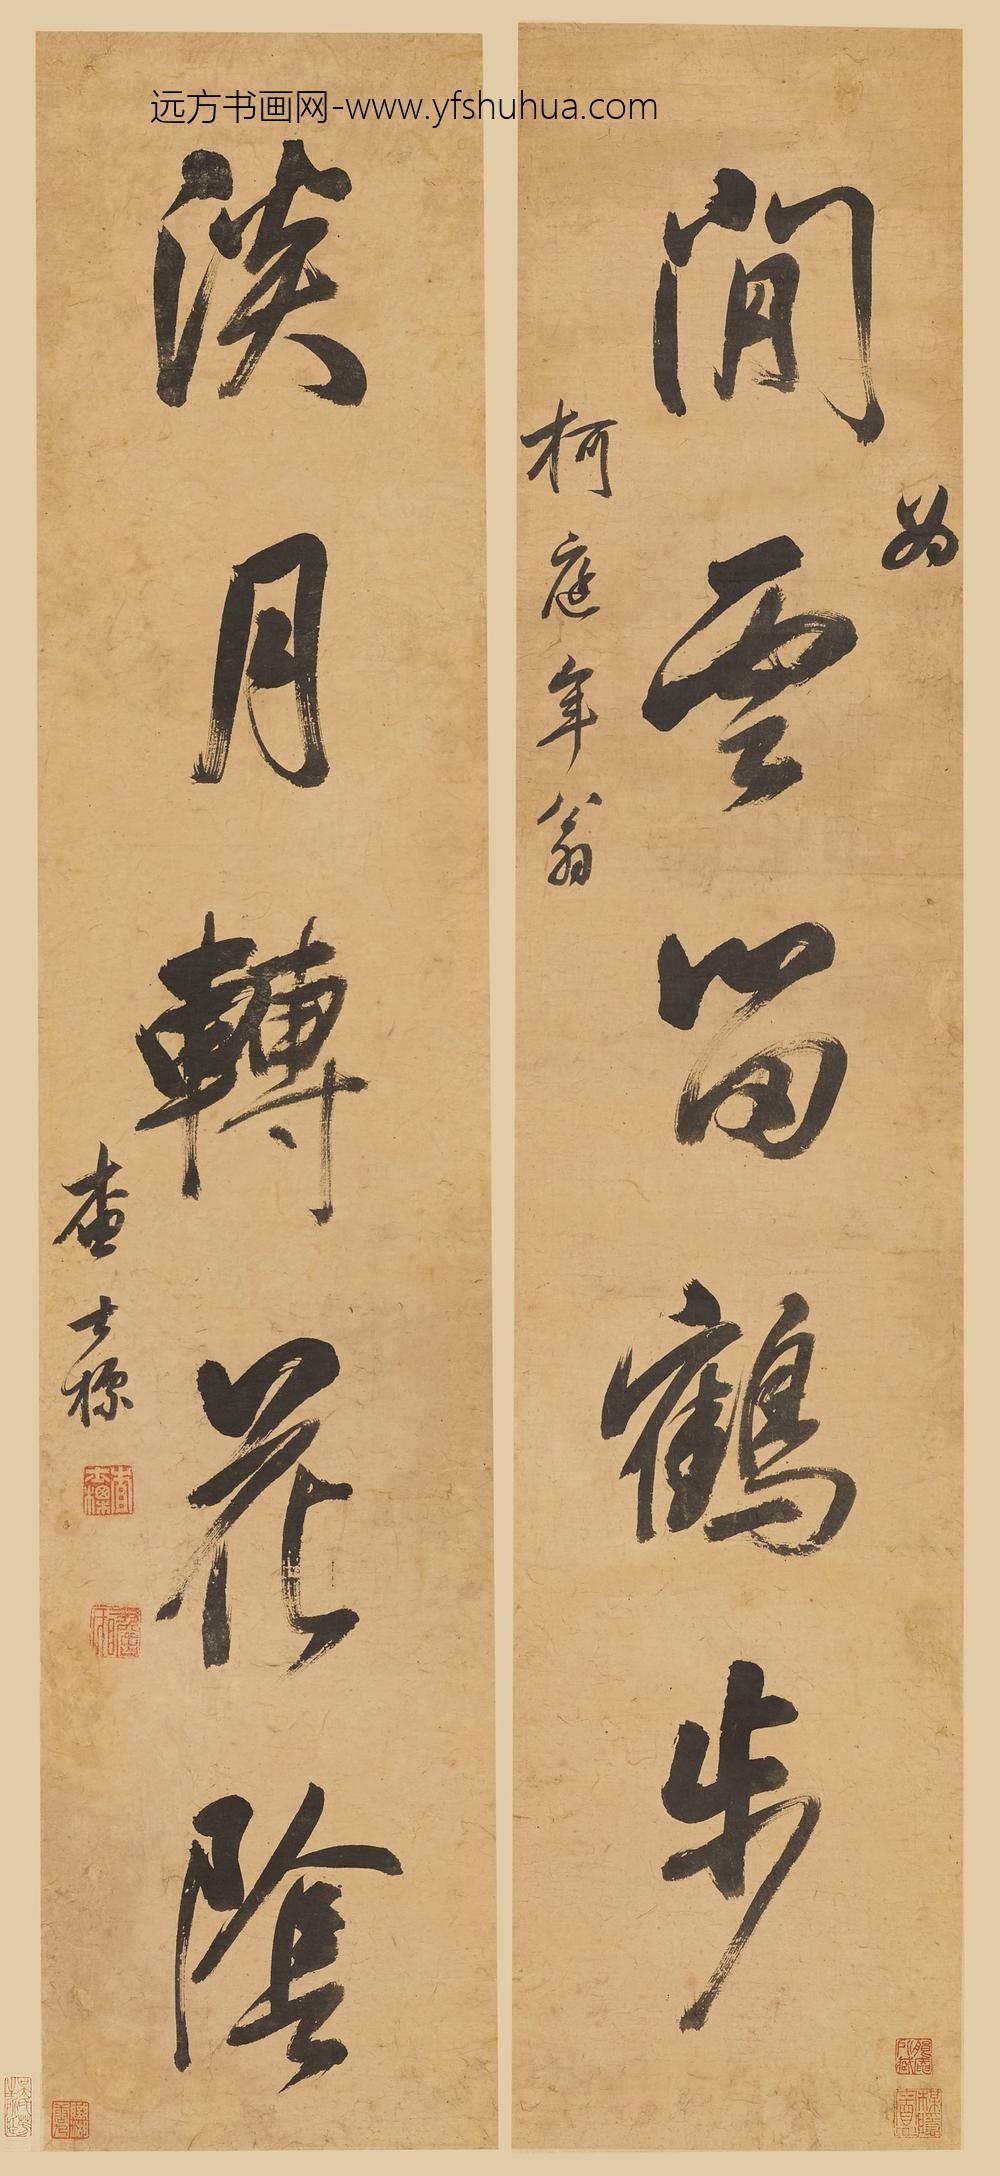 远方书画网-www.yfshuhua.com
閒雲留鶴步
為
柯庭年翁
淡月轉花陰
查士標